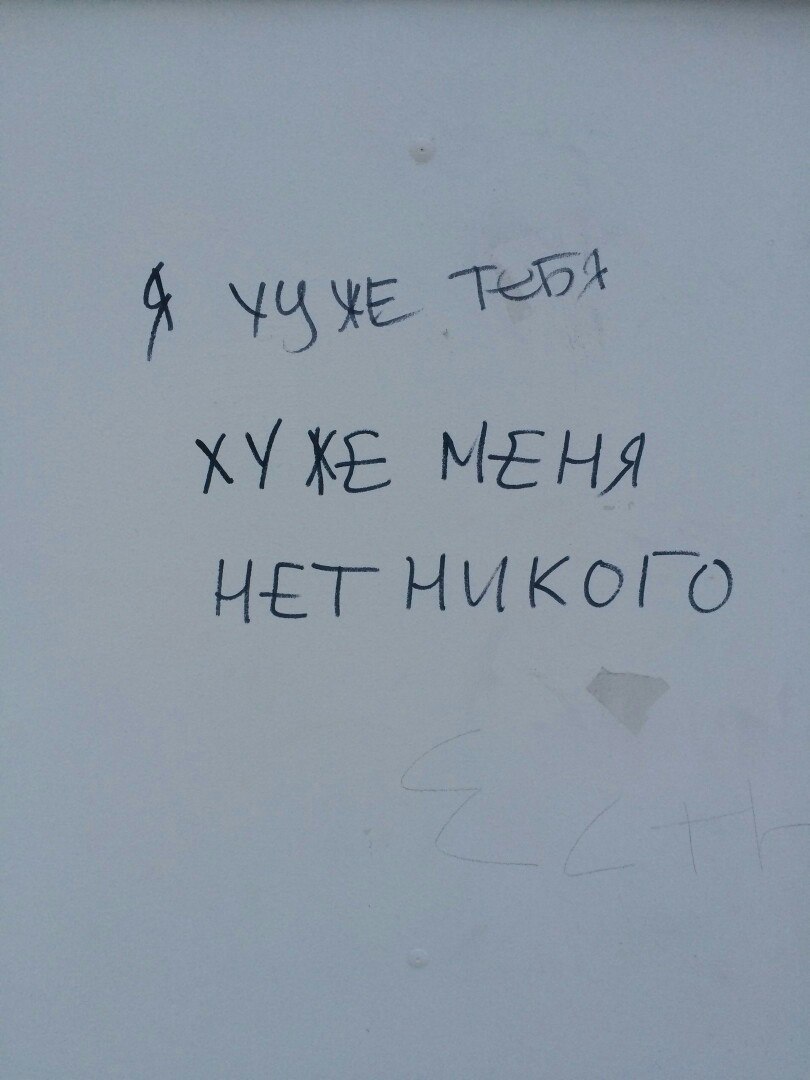 Я ХУЖЕ ТЕБЯ
ХУЖЕ МЕНЯ
НЕТ НИКОГО
Есть